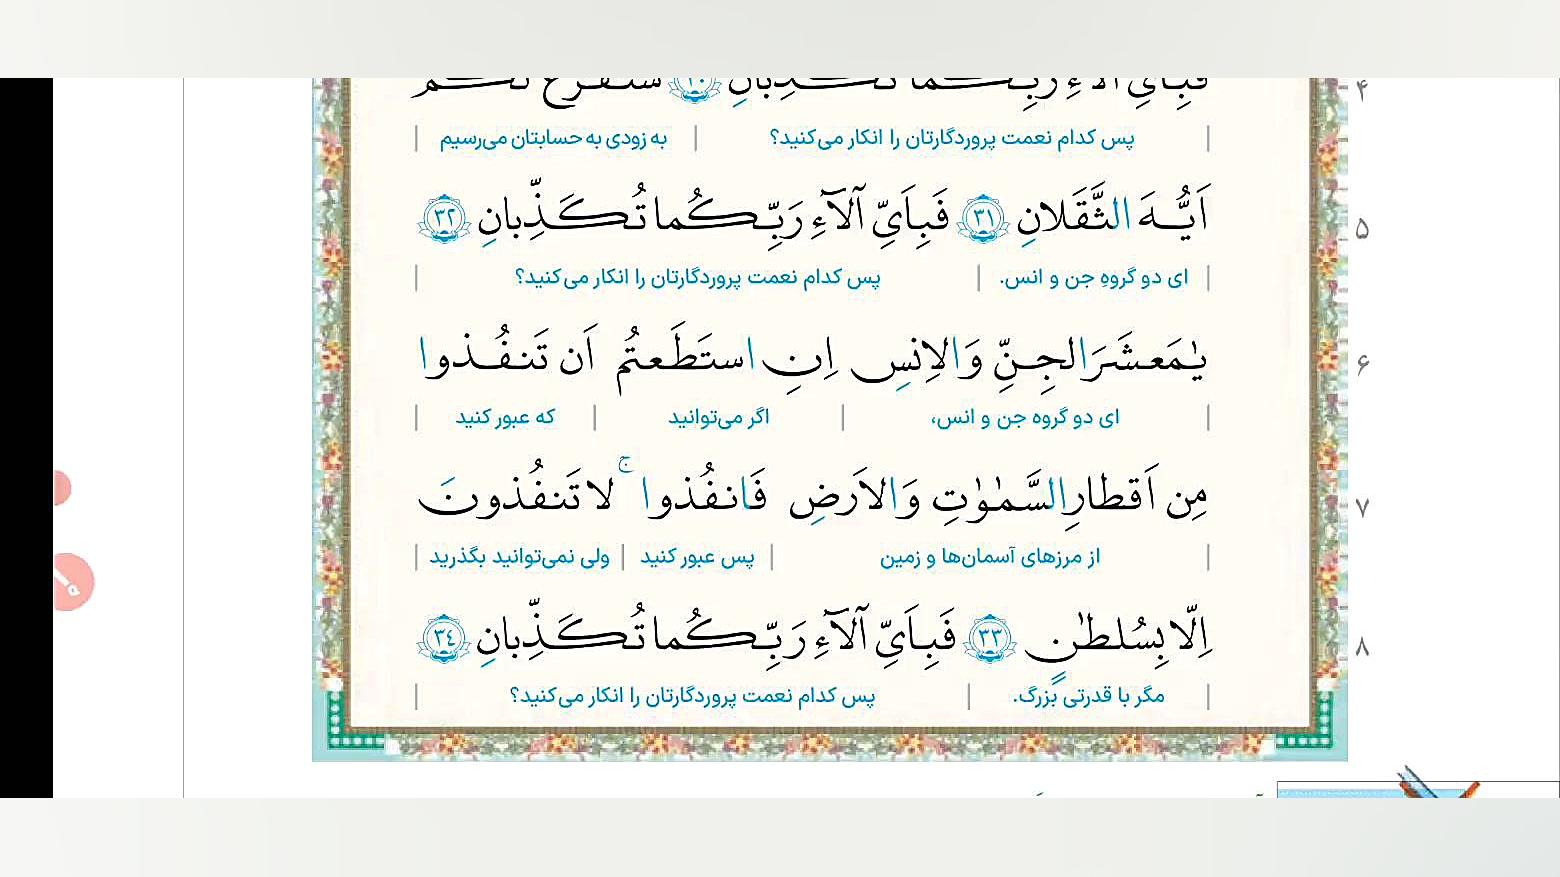 فَبِاَیِّ ءالآءِ رَبِّکُما تُکَذِّبانِ ٣٠ سَنَفرُغُ لَکُم
۴
پس کدام نعمت پروردگارتان را انکار می‌کنید؟ | به زودی به حسابتان می‌رسیم
اَیُّهَ الثَّقَلانِ ٣١ فَبِاَیِّ آلآءِ رَبِّکُما تُکَذِّبانِ ٣٢
۵
ای دو گروهِ جن و انس. | پس کدام نعمت پروردگارتان را انکار می‌کنید؟
یٰمَعشَرَ الجِنِّ وَالاِنسِ اِنِ استَطَعتُم اَن تَنفُذوا
۶
ای دو گروه جن و انس، | اگر می‌توانید | که عبور کنید
مِن اَقطارِ السَّمٰوٰتِ وَالاَرضِ فَانفُذوا ۚ لا تَنفُذونَ
۷
از مرزهای آسمان‌ها و زمین | پس عبور کنید | ولی نمی‌توانید بگذرید
اِلّا بِسُلطٰنٍ ٣٣ فَبِاَیِّ آلآءِ رَبِّکُما تُکَذِّبانِ ٣٤
۸
مگر با قدرتی بزرگ. | پس کدام نعمت پروردگارتان را انکار می‌کنید؟